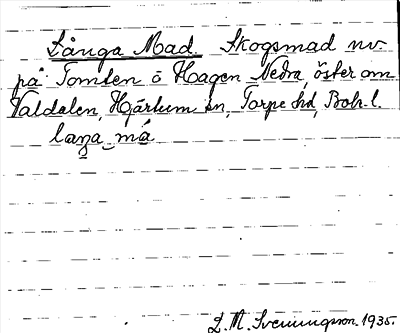 Långa Mad. Skogsmad nv.
på Tomten ö Hagen Nedra, öster om
Valdalen, Hjärtum sn, Torpe hd, Boh. l.
laŋa må
L. M. Svenungsson. 1935.